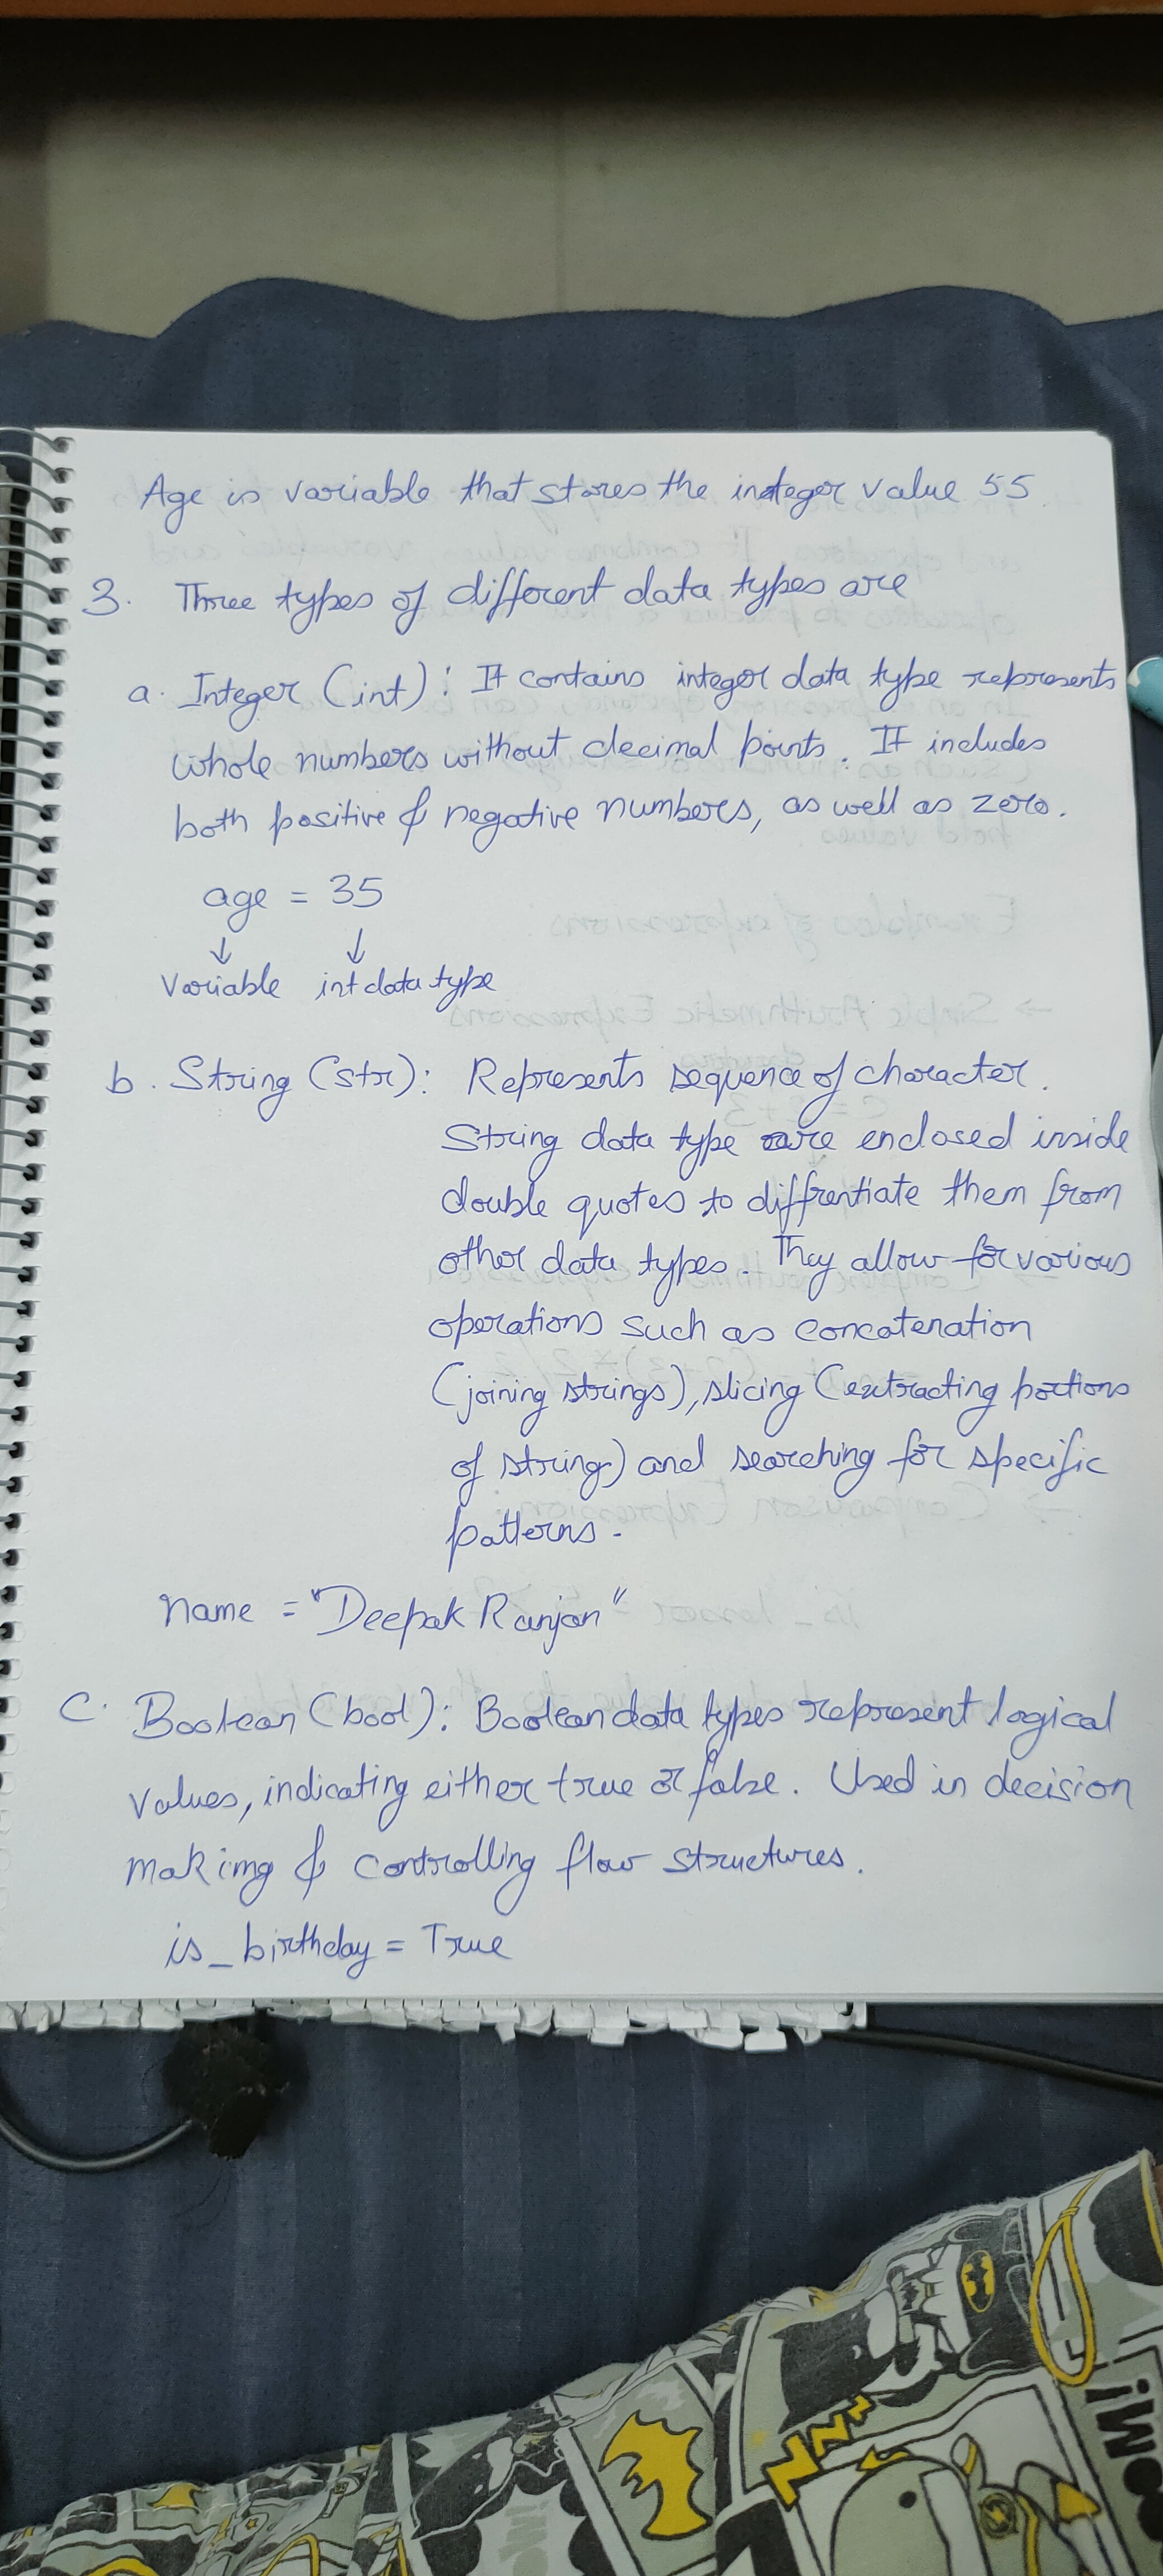 Age is variable that stores the integer value 55
3. Three types of different data types are
a. Integer (int): It contains integer data type represents
whole numbers without decimal points. It includes
both positive & negative numbers, as well as zero.
age = 35
↓ ↓
Variable int data type
b. String (str): Represents sequence of character.
String data type are enclosed inside
double quotes to diffrentiate them from
other data types. They allow for various
operations such as concatenation
(joining strings), slicing (extracting portions
of string) and searching for specific
patterns.
Name = "Deepak Ranjan"
C. Boolean (bool): Boolean data types represent logical
values, indicating either true or false. Used in decision
making & controlling flow structures.
is_birthday = True